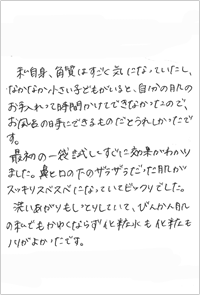 私自身、角質はすごく気になっていたし、
なかなか小さい子どもがいると、自分の肌の
お手入れって時間かけてできなかったので、
お風呂の時にできるものだとうれしかったで
す。
最初の一袋試してすぐに効果がわかり
ました。鼻と口の下のザラザラだった肌が
スッキリスベスベになっていてビックリでした。
洗いあがりもしっとりしていて、びんかん肌
の私でもかゆくならず化粧水も化粧も
ノリがよかったです。